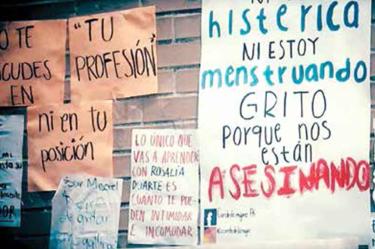 O TE
CUDES
EN
"TU
PROFESIÓN"
ni en tu
posición
LO ÚNICO QUE
VAS A APRENDER
CON ROSALÍA
DUARTE ES
CUÁNTO TE PUE-
DEN INTIMIDAR
E INCOMODAR
histérica
NI ESTOY
menstruando
GRITO
porque nos
están
ASESINANDO